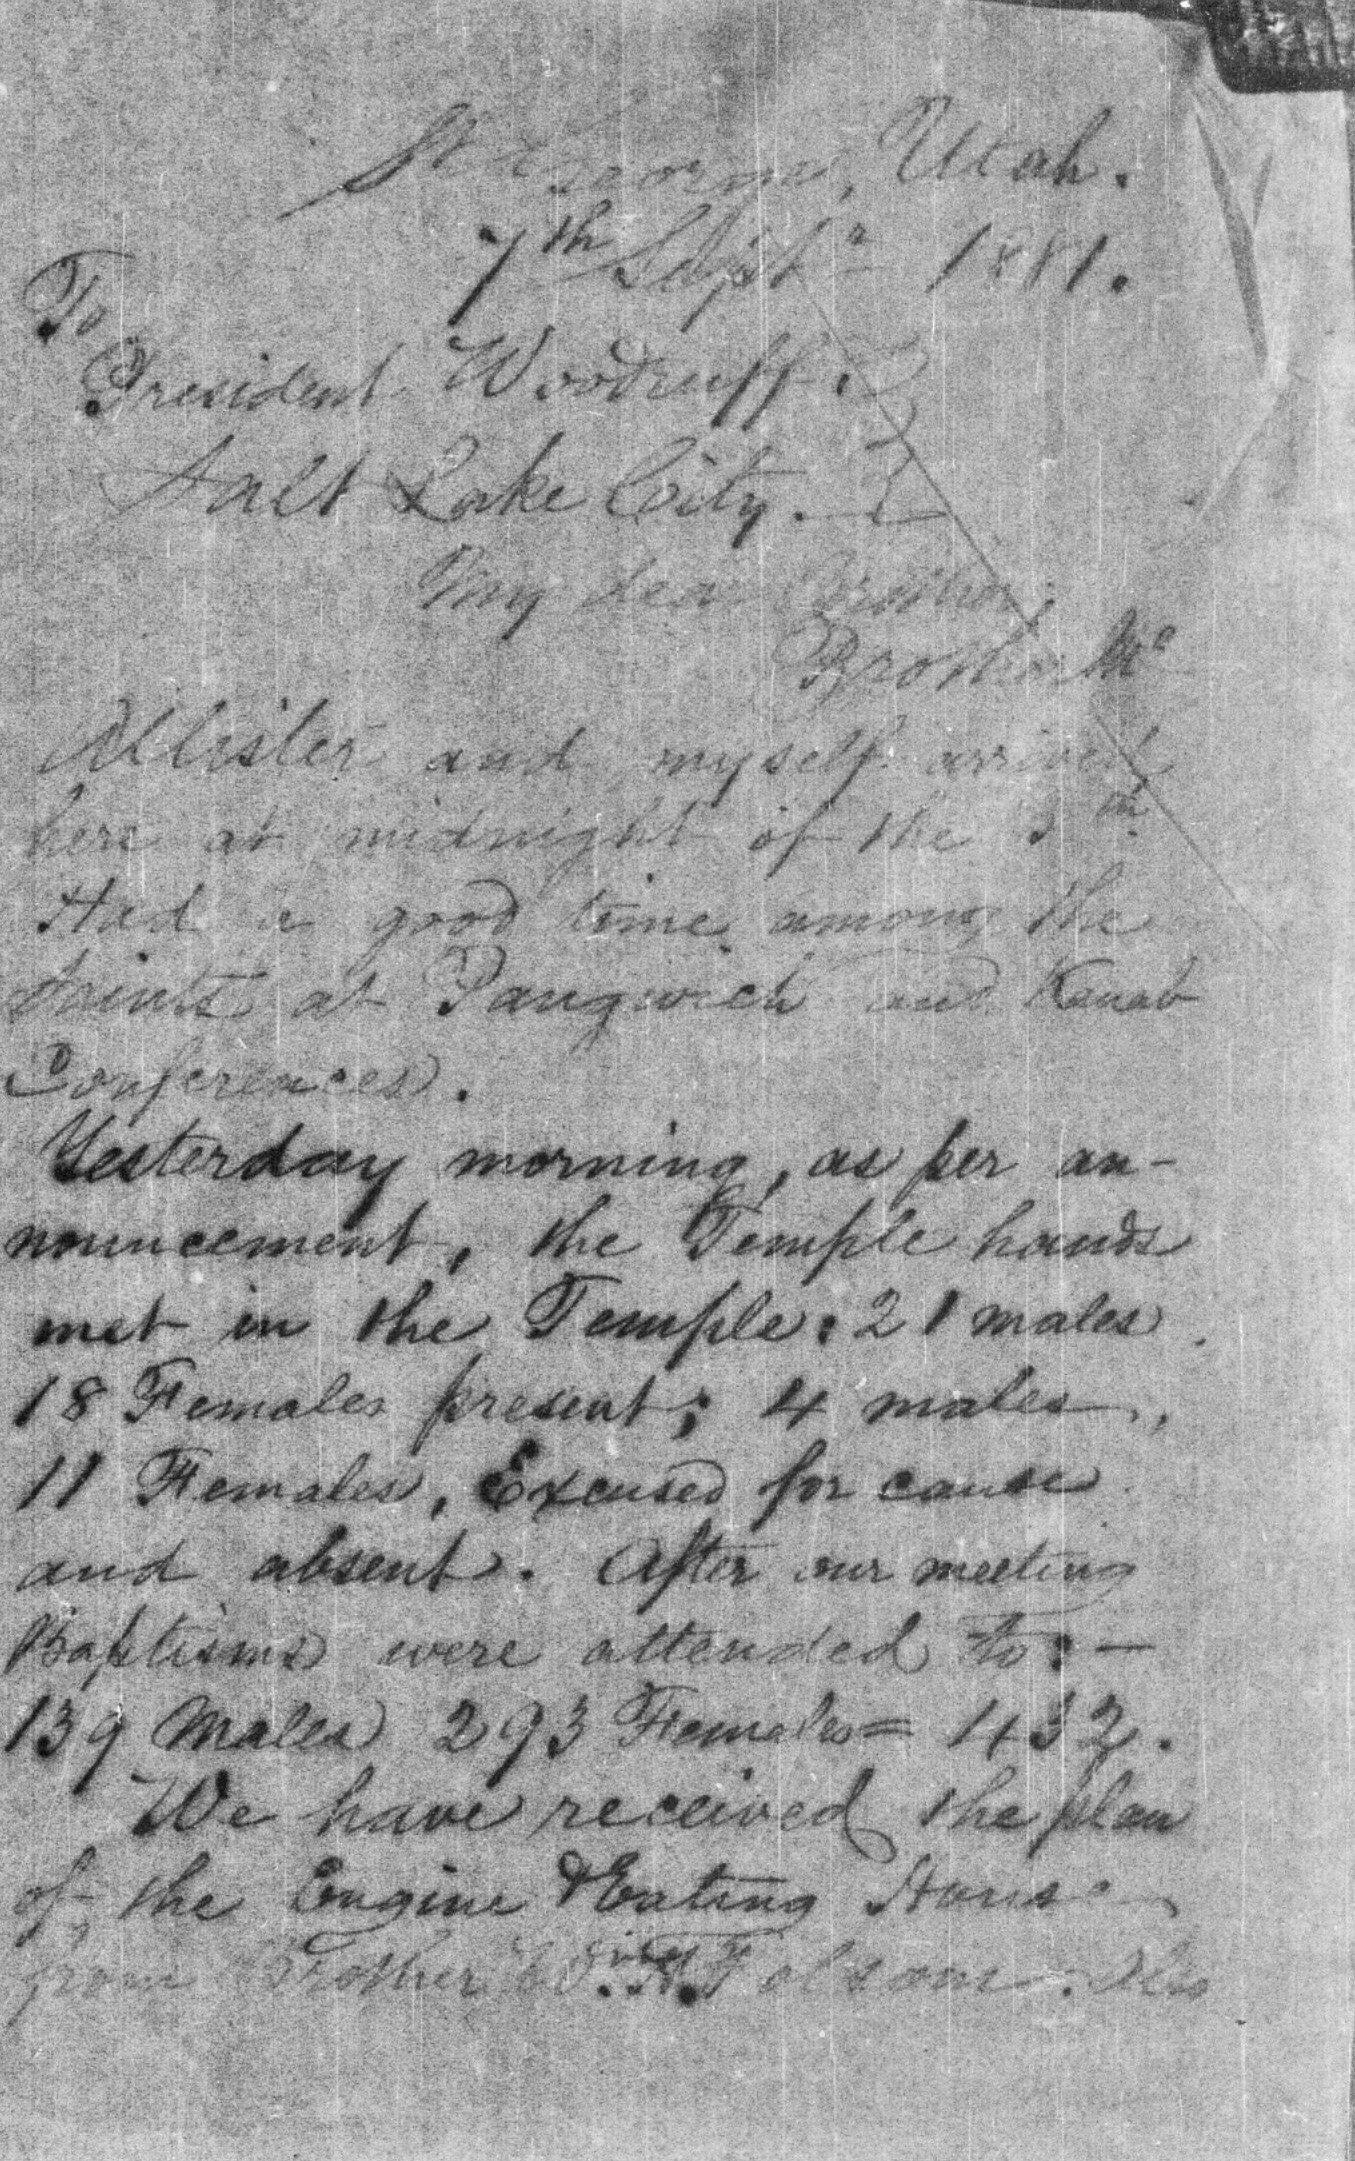 St George, Utah.
7th Septr 1881.
To
President Woodruff.
Salt Lake City.
My dear Brother
Brother Mc
Allister and myself arrived
here at midnight of the
Had a good time among the
Saints at Pangwich and Kanab
Conferences.
Yesterday morning, as per an-
nouncement, the Temple hands
met in the Temple: 21 males
18 Females present; 4 males,
11 Females, Excused for cause
and absent. After our meeting
Baptisms were attended to:-
139 Males 293 Females = 432.
We have received the plan
of the Engine & Eating House
from Father Folsom.